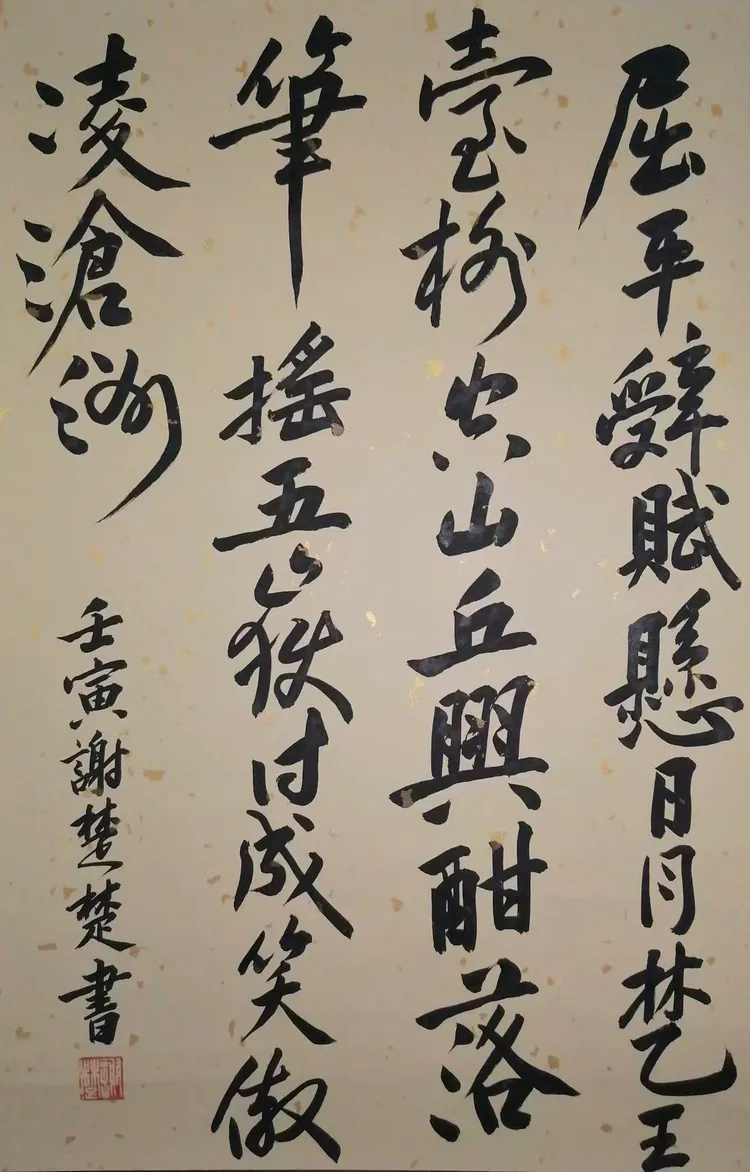 屈平辭賦懸日月楚王
臺榭空山丘興酣落
筆搖五嶽詩成笑傲
凌滄洲
壬寅謝楚楚書